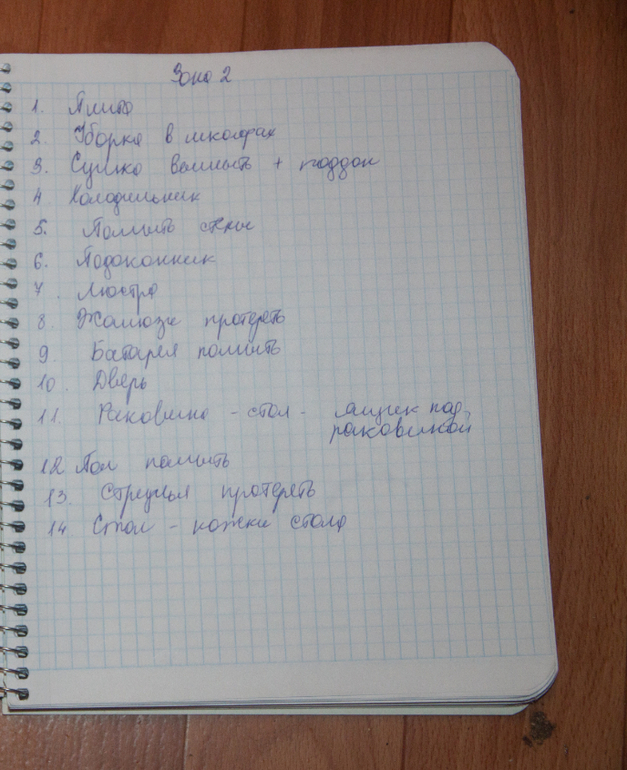 Зона 2
1. Плита
2. Уборка в шкафах
3. Сушко вымыть + поддон
4 Холодильник
5. Помыть стены
6. Подоконник
7. Люстра
8. Жалюзи протереть
9. Батарея помыть
10. Дверь
11. Раковина - стол - ящик под
раковиной
12 Пол помыть
13. Стулья протереть
14 Стол - ножки стола